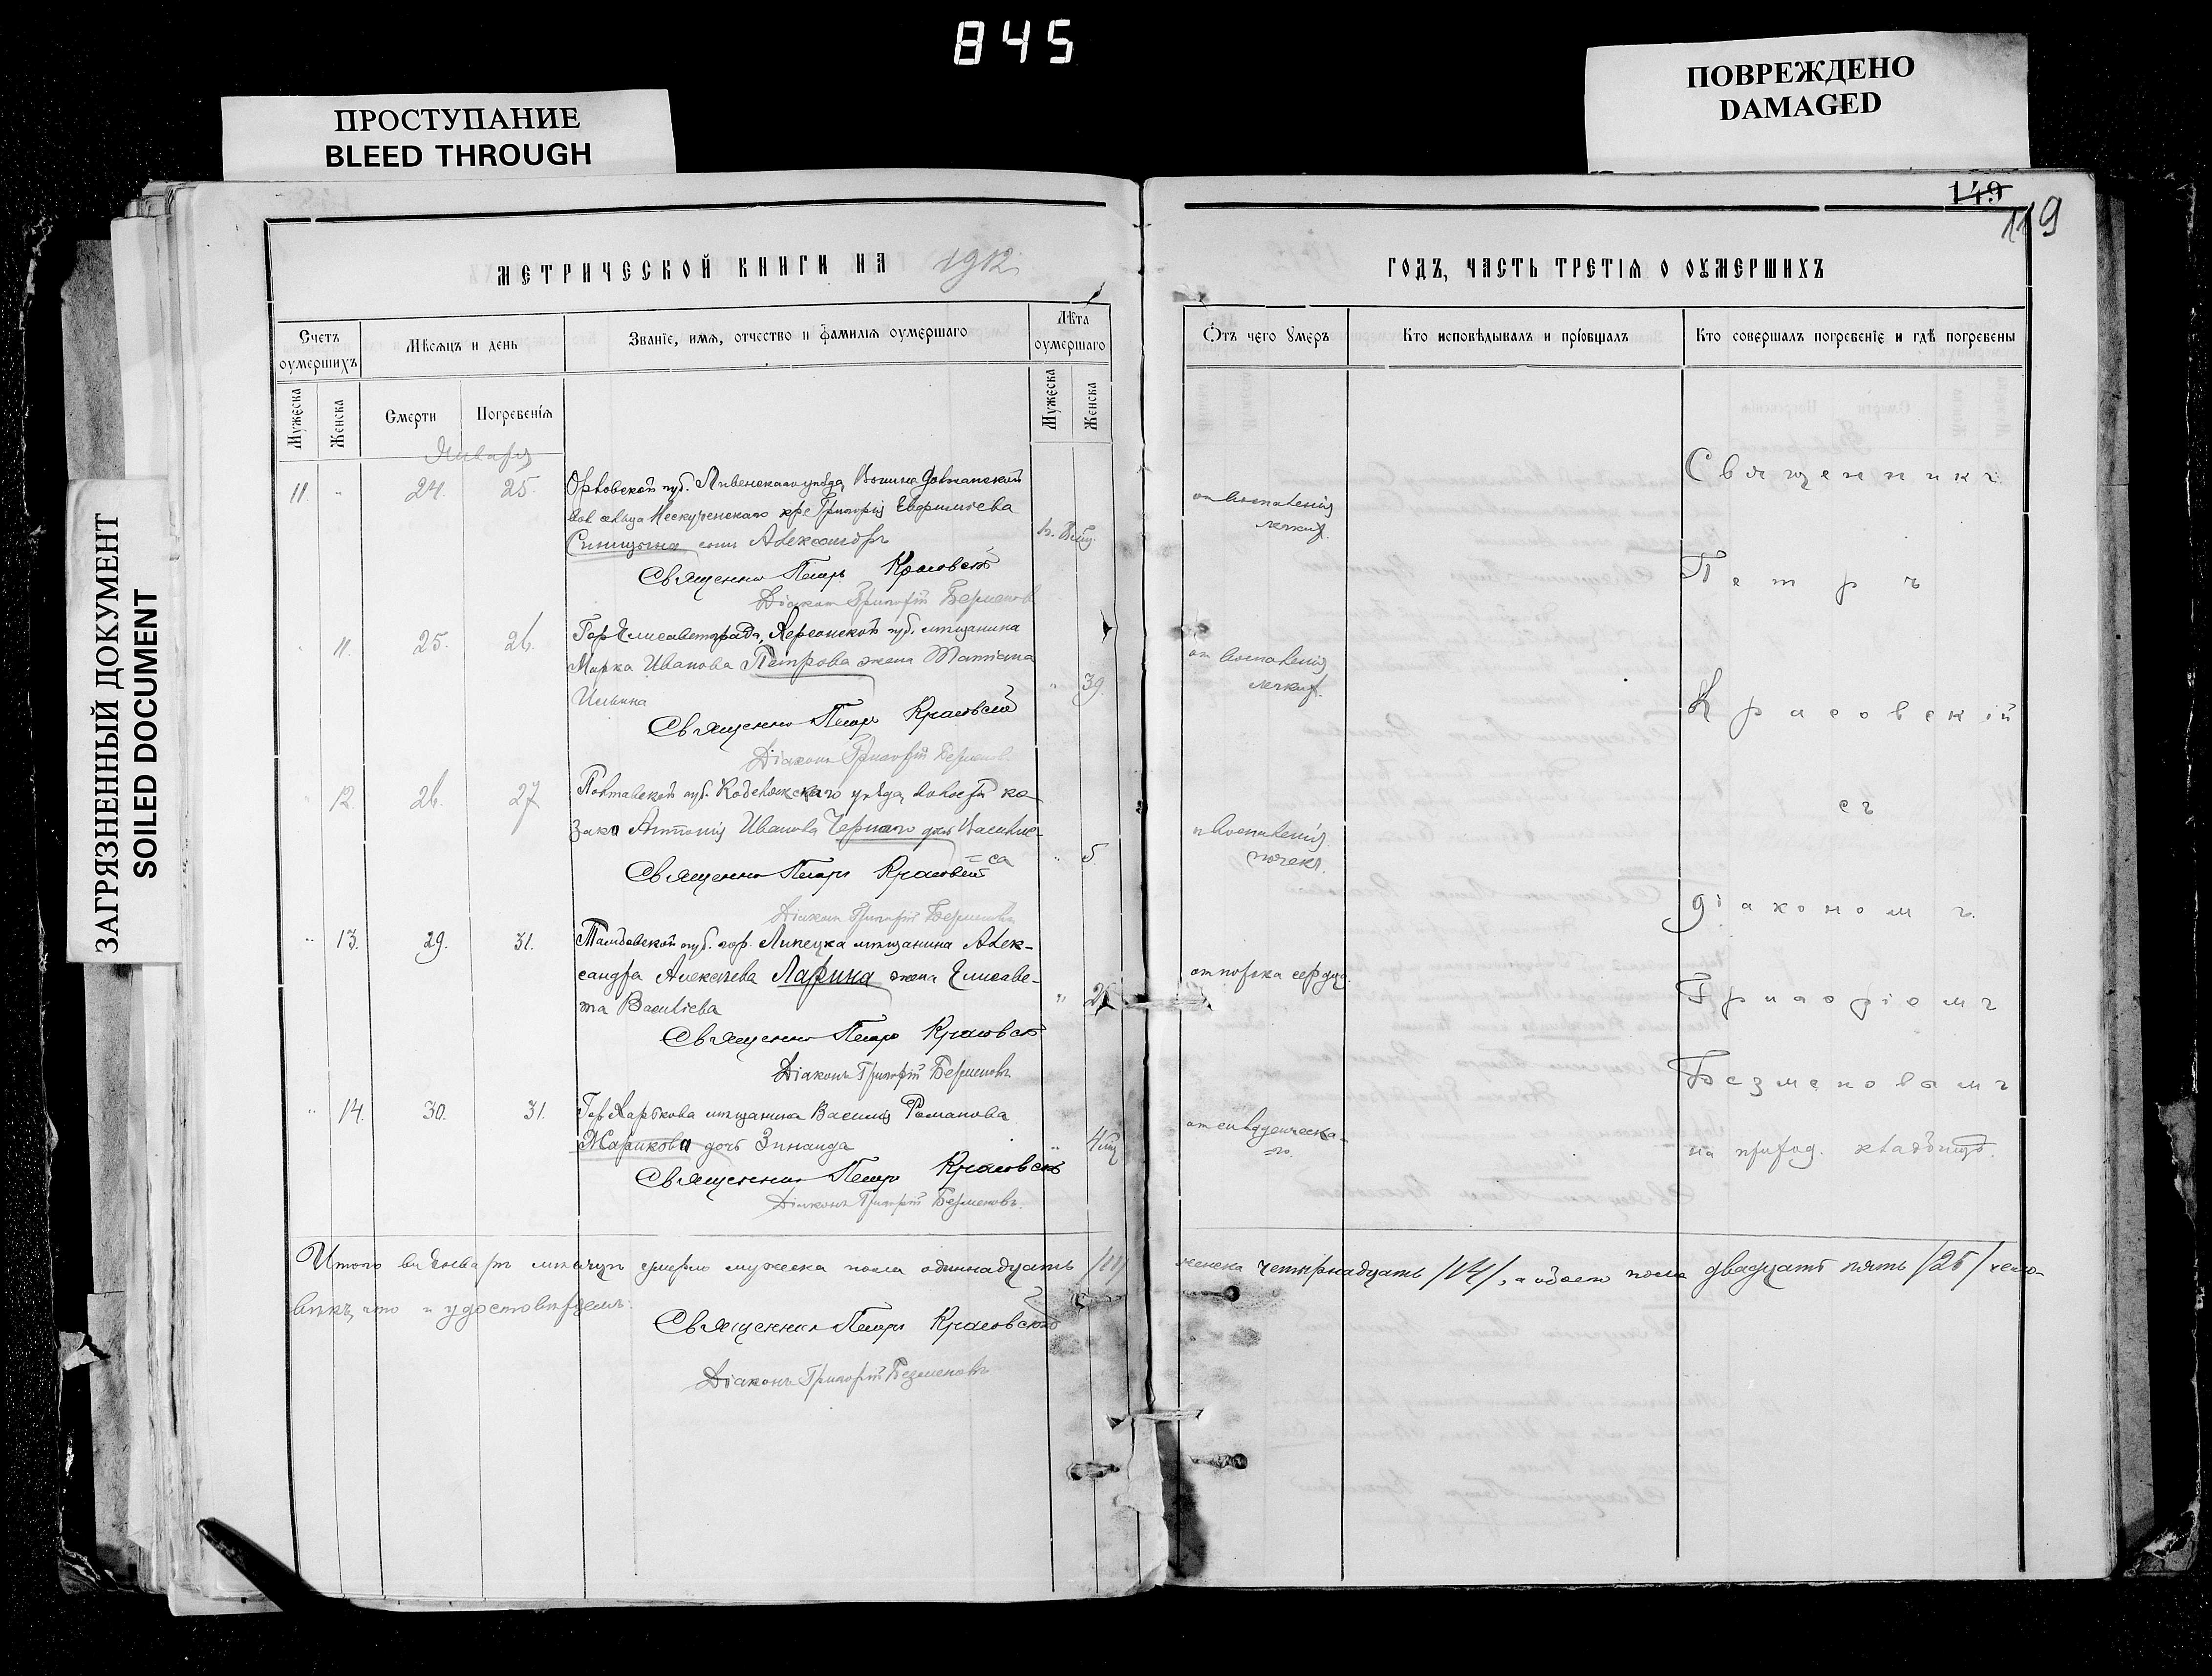 845
ПРОСТУПАНИЕ
BLEED THROUGH
ПОВРЕЖДЕНО
DAMAGED
ЗАГРЯЗНЕННЫЙ ДОКУМЕНТ
SOILED DOCUMENT
149
119
МЕТРИЧЕСКОЙ КНИГИ НА 1912
ГОДЪ, ЧАСТЬ ТРЕТІЯ О ОУМЕРШИХЪ
Счетъ оумершихъ
Мѣсяцъ и день
Званіе, имя, отчество и фамилія оумершаго
Лѣта оумершаго
Отъ чего умеръ
Кто исповѣдывалъ и пріобщалъ
Кто совершалъ погребеніе и гдѣ погребены
Мужеска
Женска
Смерти
Погребенія
Мужеска
Женска
Января
11. " 24. 25. Орловской губ. Ливенскаго уѣзда,
сельца кре Григорія Евфиміева
сынъ Александръ
отъ воспаленія
легких.
Священникъ Петръ Красовскій
Діаконъ Григорій Безменовъ
" 11. 25. 26. Гор Елисаветграда, Херсонской губ. мѣщанина
Марка Иванова Петрова жена Татіана
Ильина
" 39.
от воспаленія
легких.
Священникъ Петръ Красовскій
Діаконъ Григорій Безменовъ.
" 12. 26. 27. Полтавской губ. уѣзда, ка-
зака Антонія Иванова Чернаго дочь Васили-
=са
" 5.
воспаленія
почекъ.
Священникъ Петръ Красовскій
Діаконъ Григорій Безменовъ
" 13. 29. 31. Тамбовской губ. гор. Липецка мѣщанина Алек-
сандра Алексѣева Ларина жена Елисаве-
та Василіева
"
от порока сердца
Священникъ Петръ Красовскій
Діаконъ Григорій Безменовъ
" 14. 30. 31. Гор Харькова мѣщанина Василія Романова
Марикова дочь Зинаида
"
Священникъ Петръ Красовскій
Діаконъ Григорій Безменовъ.
Священникъ
Петръ
Красовскій
съ
діакономъ
Григоріемъ
Безменовымъ
на приход. кладбищѣ.
Итого въ Январѣ мѣсяцѣ умерло мужеска пола одиннадцать /11/ женска четырнадцать /14/, а обоего пола двадцать пять /25/ чело-
вѣкъ, что и удостовѣряемъ.
Священникъ Петръ Красовскій
Діаконъ Григорій Безменовъ